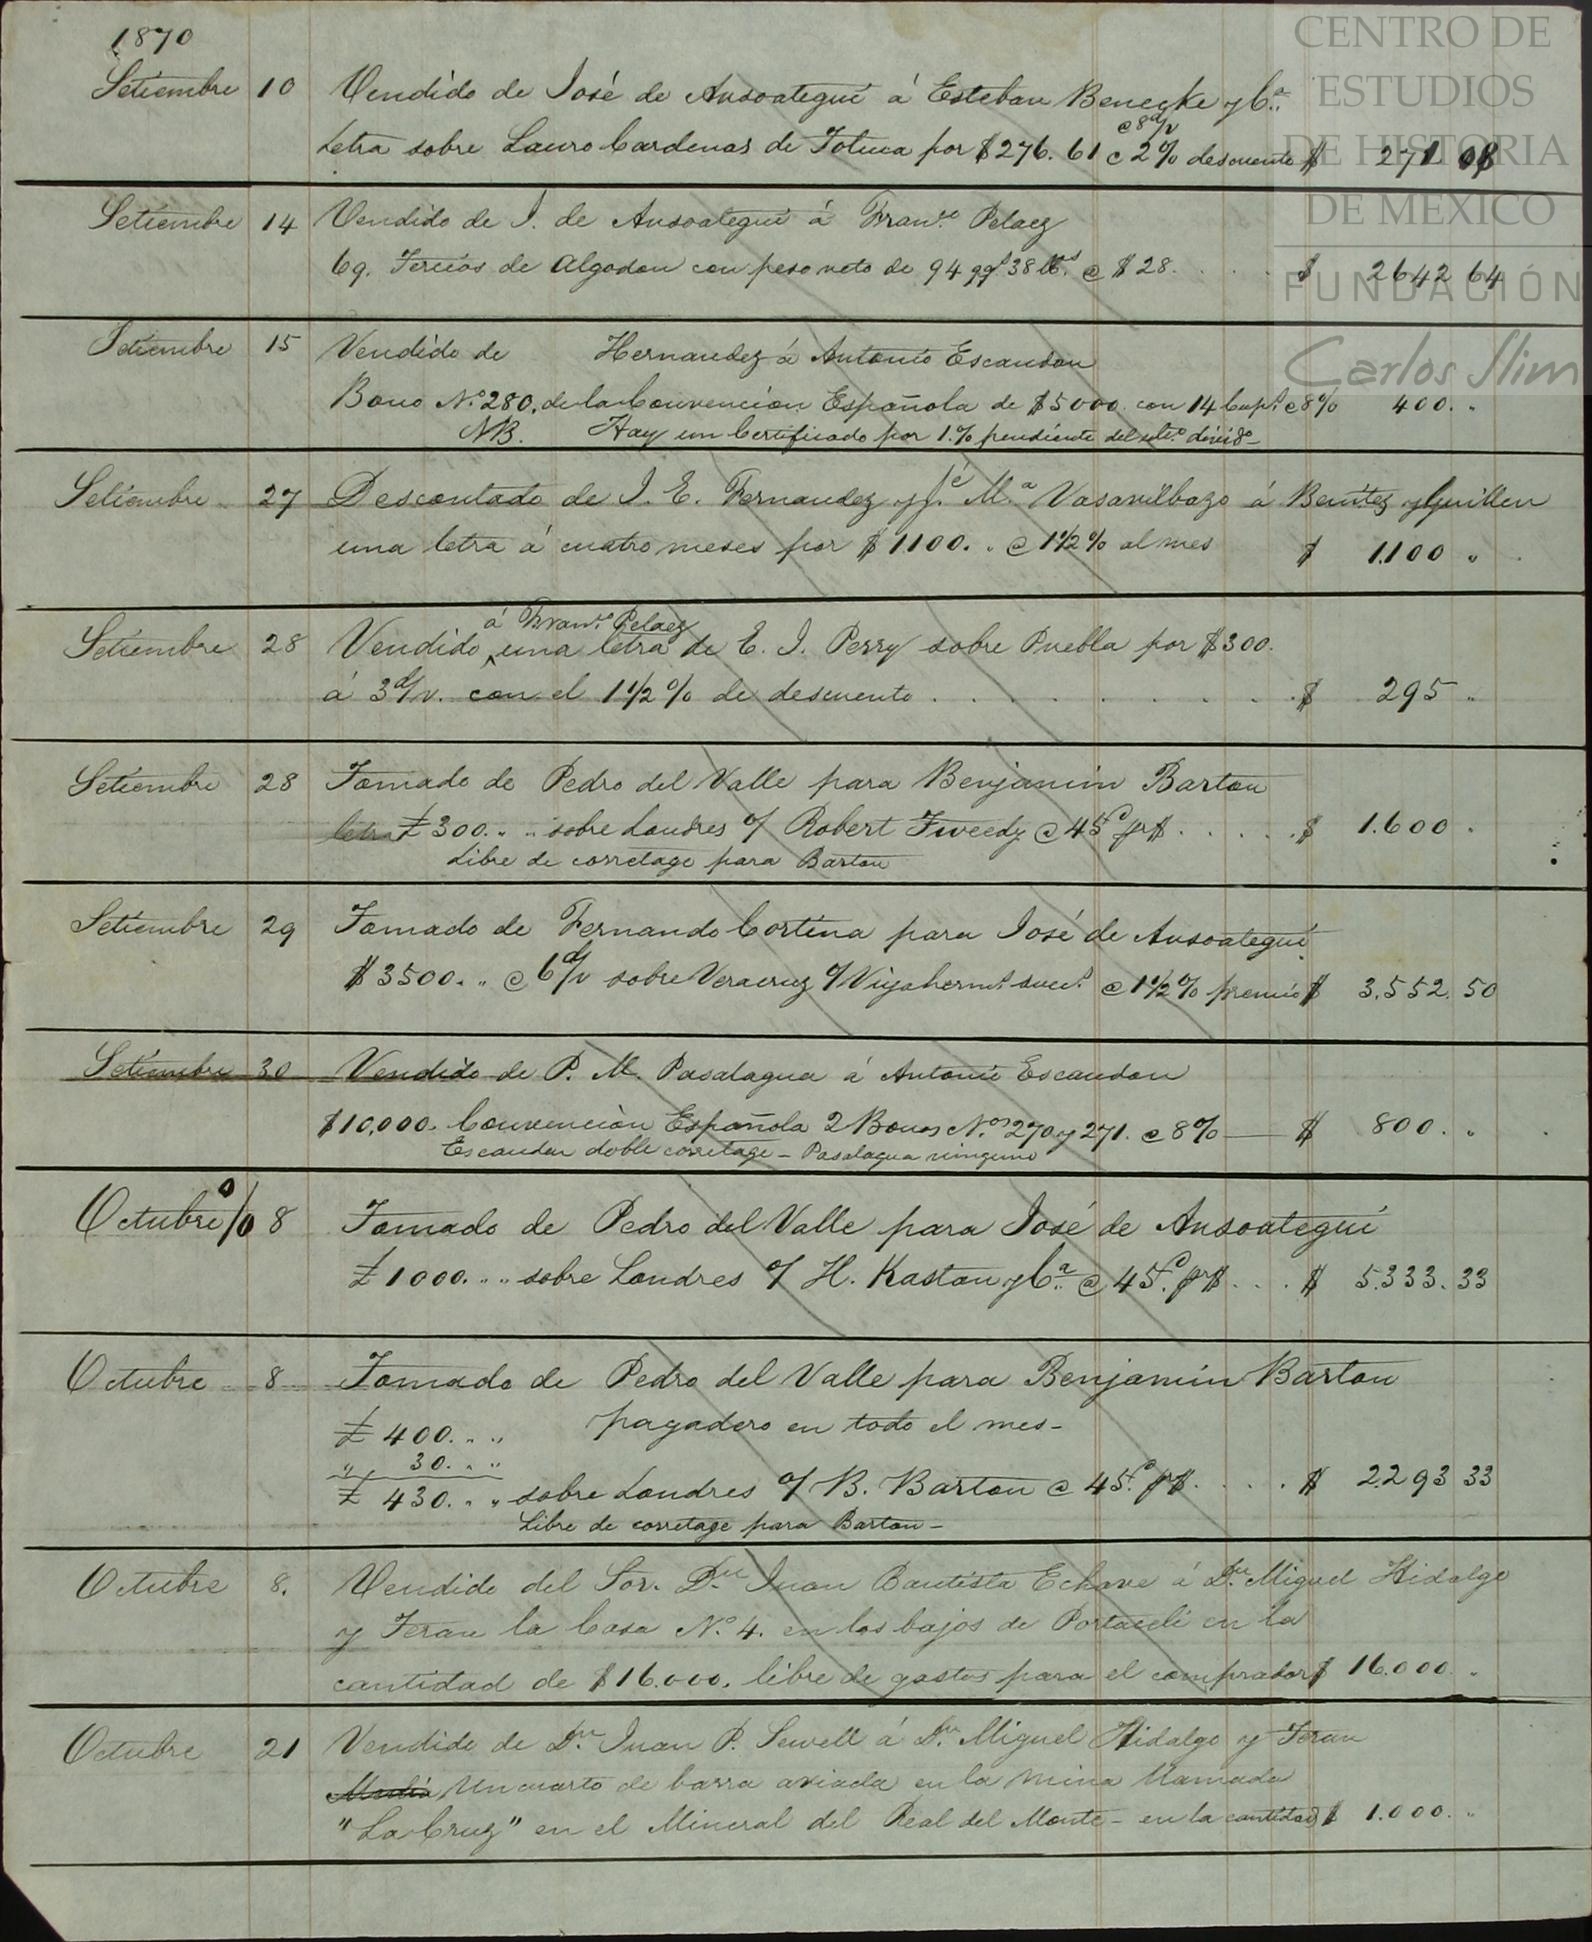 1870
Setiembre 10 Vendido de José de Ansoategui á Esteban Benecke y Cª
@ 8 d/v
Letra sobre Lauro Cardenas de Toluca por $276. 61 @ 2% descuento $ 271 08
Setiembre 14 Vendido de J. de Ansoategui á Fran.co Pelaez
69. Tercios de Algodon con peso neto de 94 qq.s 38 lb.s @ $28. . . . . $ 2642 64
Setiembre 15 Vendido de Hernandez á Antonio Escandon
Bono N.º 280. de la Convencion Española de $5000. con 14 Cup.s @ 8% 400. "
NB. Hay un Certificado por 1.% pendiente del ult.º divid.º
Setiembre 27 Descontado de J. E. Fernandez y J.é M.ª Vasavilbazo á Benitez y Guillen
una letra á cuatro meses por $1100. " @ 1½% al mes $ 1.100 "
á Fran.co Pelaez
Setiembre 28 Vendido una letra de E. J. Perry sobre Puebla por $300.
á 3 d/v. con el 1½% de descuento . . . . . . . . $ 295 "
Setiembre 28 Tomado de Pedro del Valle para Benjamin Barton
letra £300. " " sobre Londres c/ Robert Tweedy @ 45 d. p $ . . . . . $ 1.600 "
Libre de corretage para Barton
Setiembre 29 Tomado de Fernando Cortina para José de Ansoategui
$3500. " @ 6 d/v sobre Veracruz c/ Viya herm.s suc.s @ 1½% premio $ 3.552. 50
Setiembre 30 Vendido de P. M. Pasalagua á Antonio Escandon
$10,000. Convención Española 2 Bonos N.os 270 y 271. @ 8% — $ 800. "
Escandon doble corretage - Pasalagua ninguno
Octubre 8 Tomado de Pedro del Valle para José de Ansoategui
£1000. " " sobre Londres c/ H. Kastan y Cª @ 45 d. p $ . . . $ 5.333. 33
Octubre 8 Tomado de Pedro del Valle para Benjamin Barton
£ 400. " " pagadero en todo el mes -
" 30. " "
£ 430. " " sobre Londres c/ B. Barton @ 45 d. p $ . . . . $ 2.293 33
Libre de corretage para Barton -
Octubre 8. Vendido del Sor. Dn. Juan Bautista Echave á Dn. Miguel Hidalgo
y Teran la Casa N.º 4. en los bajos de Portaceli en la
cantidad de $16.000. libre de gastos para el comprador $ 16.000. "
Octubre 21 Vendido de Dn. Juan P. Sewell á Dn. Miguel Hidalgo y Teran
Un cuarto de barra aviada en la mina llamada
"La Cruz" en el Mineral del Real del Monte - en la cantidad $ 1.000. "
CENTRO DE
ESTUDIOS
DE HISTORIA
DE MEXICO
FUNDACIÓN
Carlos Slim